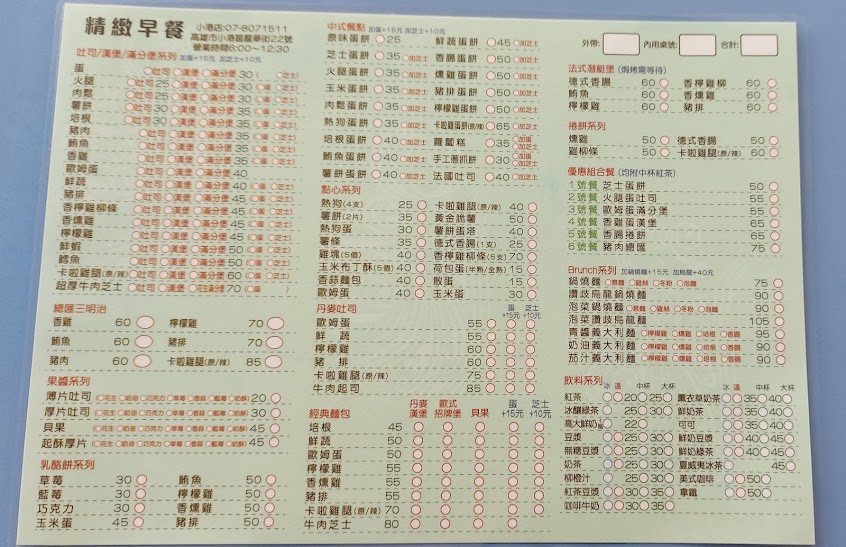 精緻早餐
小港店:07-8071511
高雄市小港區龍華街22號
營業時間6:00~12:30
外帶: 內用桌號: 合計:
吐司/漢堡/滿分堡系列 加蛋+15元 加芝士+10元
蛋 吐司 漢堡 滿分堡 30 ( 芝士)
火腿 吐司25 漢堡 滿分堡 30 (蛋 芝士)
肉鬆 吐司25 漢堡 滿分堡 30 (蛋 芝士)
薯餅 吐司30 漢堡 滿分堡 30 (蛋 芝士)
培根 吐司30 漢堡 滿分堡
豬肉 吐司 漢堡 滿分堡
鮪魚 吐司 漢堡 滿分堡
香雞 吐司 漢堡 滿分堡
歐姆蛋 吐司 漢堡 滿分堡 40
鮮蔬 吐司 漢堡 滿分堡 40
豬排 吐司 漢堡 滿分堡
香檸雞柳條 吐司 漢堡 滿分堡 45
香燻雞 吐司 漢堡 滿分堡
檸檬雞 吐司 漢堡 滿分堡
鮮蝦 吐司 漢堡 滿分堡
鱈魚 吐司 漢堡 滿分堡 50
卡啦雞腿(原/辣) 吐司 漢堡 滿分堡 60
起厚牛肉芝士 吐司 70
總匯三明治
香雞 60 檸檬雞 70
鮪魚 60 香燻雞 70
豬肉 60 卡啦雞腿(原/辣) 85
果醬系列
薄片吐司 (花生 奶油 巧克力 草莓 香蒜 藍莓 奶酥) 20
厚片吐司 (花生 奶油 巧克力 草莓 香蒜 藍莓 奶酥) 30
貝果 (花生 奶油 巧克力 草莓 香蒜 藍莓 奶酥) 45
起酥厚片 (花生 奶油 巧克力 草莓 香蒜 藍莓 奶酥) 45
乳酪餅系列
草莓 30 鮪魚 50
藍莓 30 檸檬雞 50
巧克力 30 香燻雞 50
玉米蛋 45 豬排 50
中式餐點 加蛋+15元 加芝士+10元
原味蛋餅 25 鮮蔬蛋餅 45 加芝士
芝士蛋餅 35 加芝士 香腸蛋餅 50 加芝士
火腿蛋餅 35 加芝士 燻雞蛋餅 50 加芝士
玉米蛋餅 35 加芝士 豬排蛋餅 50 加芝士
肉鬆蛋餅 35 加芝士 檸檬雞蛋餅 50 加芝士
熱狗蛋餅 35 加芝士 卡啦雞蛋餅(原/辣) 65 加芝士
培根蛋餅 40 加芝士 蘿蔔糕 35 加蛋 加芝士
鮪魚蛋餅 40 加芝士 手工蔥抓餅 30 加蛋 加芝士
薯餅蛋餅 40 加芝士 法國吐司 40 加芝士
點心系列
熱狗(4支) 25 卡啦雞腿(原/辣) 40
薯餅(2片) 35 黃金脆薯 50
熱狗蛋 30 薯餅蛋塔 40
薯條 35 德式香腸(1支) 25
雞塊(5個) 40 香檸雞柳條(5支) 70
玉米布丁酥(5個) 40 荷包蛋(半熟/全熟) 15
香蒜麵包 40 散蛋 15
歐姆蛋 40 玉米蛋 30
丹麥吐司 蛋+15元 芝士+10元
歐姆蛋 55
鮮蔬 55
檸檬雞 60
豬排 60
卡啦雞腿(原/辣) 75
牛肉起司 85
經典麵包 丹麥漢堡 歐式招牌堡 貝果 蛋+15元 芝士+10元
培根 45
鮮蔬 50
歐姆蛋 50
檸檬雞 55
香燻雞 55
豬排 55
卡啦雞腿(原/辣) 70
牛肉芝士 80
法式潛艇堡 (焗烤需等待)
德式香腸 60 香檸雞柳 60
鮪魚 60 香燻雞 60
檸檬雞 60 豬排 60
捲餅系列
燻雞 50 德式香腸 50
雞柳條 50 卡啦雞腿(原/辣) 60
優惠組合餐 (均附中杯紅茶)
1號餐 芝士蛋餅 50
2號餐 火腿蛋吐司 55
3號餐 歐姆蛋滿分堡 55
4號餐 香雞蛋漢堡 65
5號餐 香腸捲餅 65
6號餐 豬肉總匯 75
Brunch系列 加鍋燒麵+15元 加烏龍+40元
鍋燒麵 意麵 雞絲 冬粉 泡麵 75
讚歧烏龍鍋燒麵 90
泡菜鍋燒麵 意麵 雞絲 冬粉 泡麵 90
泡菜讚歧烏龍麵 105
青醬義大利麵 檸檬雞 燻雞 培根 香腸 95
奶油義大利麵 檸檬雞 燻雞 培根 香腸 90
茄汁義大利麵 檸檬雞 燻雞 培根 香腸 90
飲料系列 冰 溫 中杯 大杯 冰 溫 中杯 大杯
紅茶 20 25 薰衣草奶茶 35 40
冰釀綠茶 25 30 鮮奶茶 35 40
高大鮮奶 可可 35 40
豆漿 25 30 鮮奶豆漿 40 45
無糖豆漿 25 30 鮮奶綠茶 35 40
奶茶 25 30 夏威夷冰茶 45
柳橙汁 25 30 美式咖啡 50
紅茶豆漿 30 35 拿鐵 50
咖啡牛奶 30 35